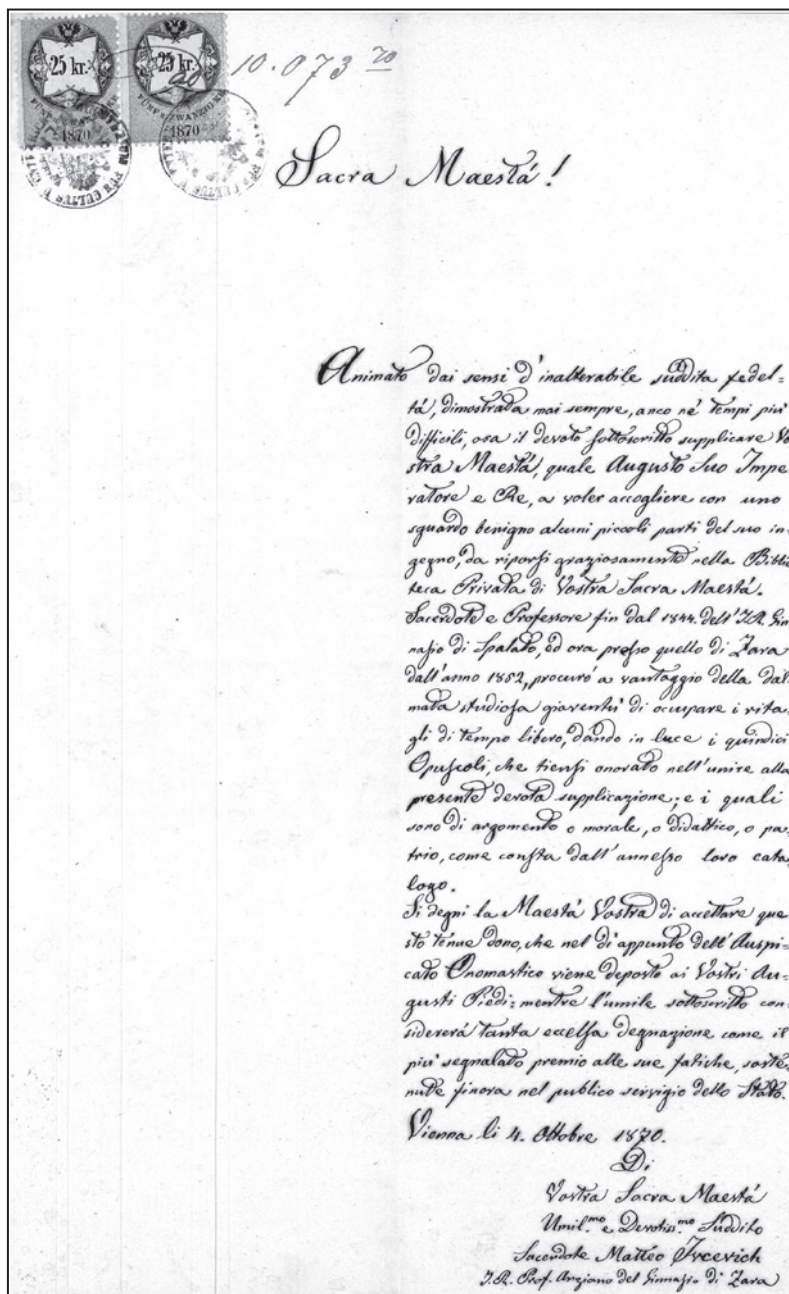 25 kr. 25 kr.
FÜNF &ZWANZIG KR
1870 1870
10.073 70
Sacra Maestá!
Animato dai sensi d'inalterabile suddita fedel=
tá, dimostrada mai sempre, anco né tempi piú
difficili, osa il devoto sottoscritto supplicare Vo
stra Maestá, quale Augusto Suo Impe
ratore e Re, a voler accogliere con uno
sguardo benigno alcuni piccoli parti del suo in=
gegno, da riporsi graziosamente nella Biblio
teca Privata di Vostra Sacra Maestá.
Sacerdote e Professore fin dal 1844. dell'I.R. Gin
nasio di Spalato, ed ora presso quello di Zara
dall'anno 1852, procuró a vantaggio della dal=
mata studiosa gioventú di occupare i rita=
gli di tempo libero, dando in luce i quindici
Opuscoli, che tiensi onorato nell'unire alla
presente devota supplicazione; e i quali
sono di argomento o morale, o didattico, o pa=
trio, come consta dall'annesso loro cata=
logo.
Si degni la Maestá Vostra di accettare que
sto tenue dono, che nel dì appunto dell'Auspi=
cato Onomastico viene deposto ai Vostri Au=
gusti Piedi: mentre l'umile sottoscritto con=
sidererá tanta eccelsa degnazione come il
piú segnalato premio alle sue fatiche, soste=
nute finora nel publico servigio dello Stato.
Vienna li 4. Ottobre 1870.
Di
Vostra Sacra Maestá
Umil.mo e Devotiss.mo Suddito
Sacerdote Matteo Ivcevich
I.R. Prof. Anziano del Ginnasio di Zara